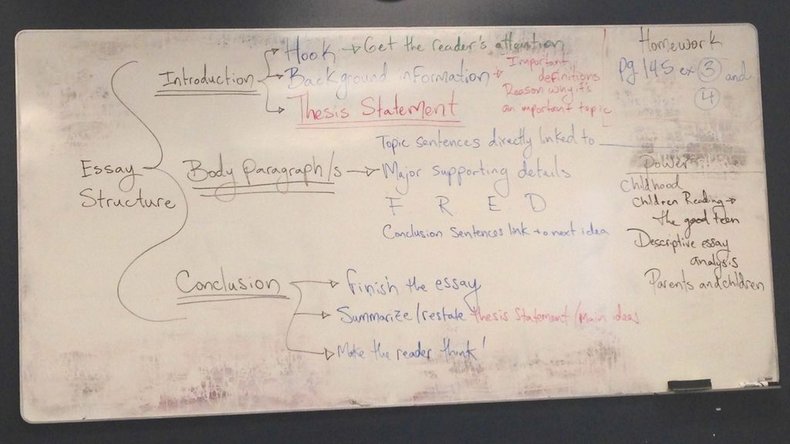 Essay
Structure
Introduction
Hook → Get the reader's attention
Background information → Important
definitions
Reason why it's
an important topic
Thesis Statement
Body Paragraph/s →
Topic sentences directly linked to
Major supporting details
F R E D
Conclusion Sentences link to next idea
Conclusion
Finish the essay
Summarize/restate thesis statement/main ideas
Make the reader think!
Homework
pg 145 ex 3 and
4
Power
Childhood
Children Reading →
the good teen
Descriptive essay
analysis
Parents and children